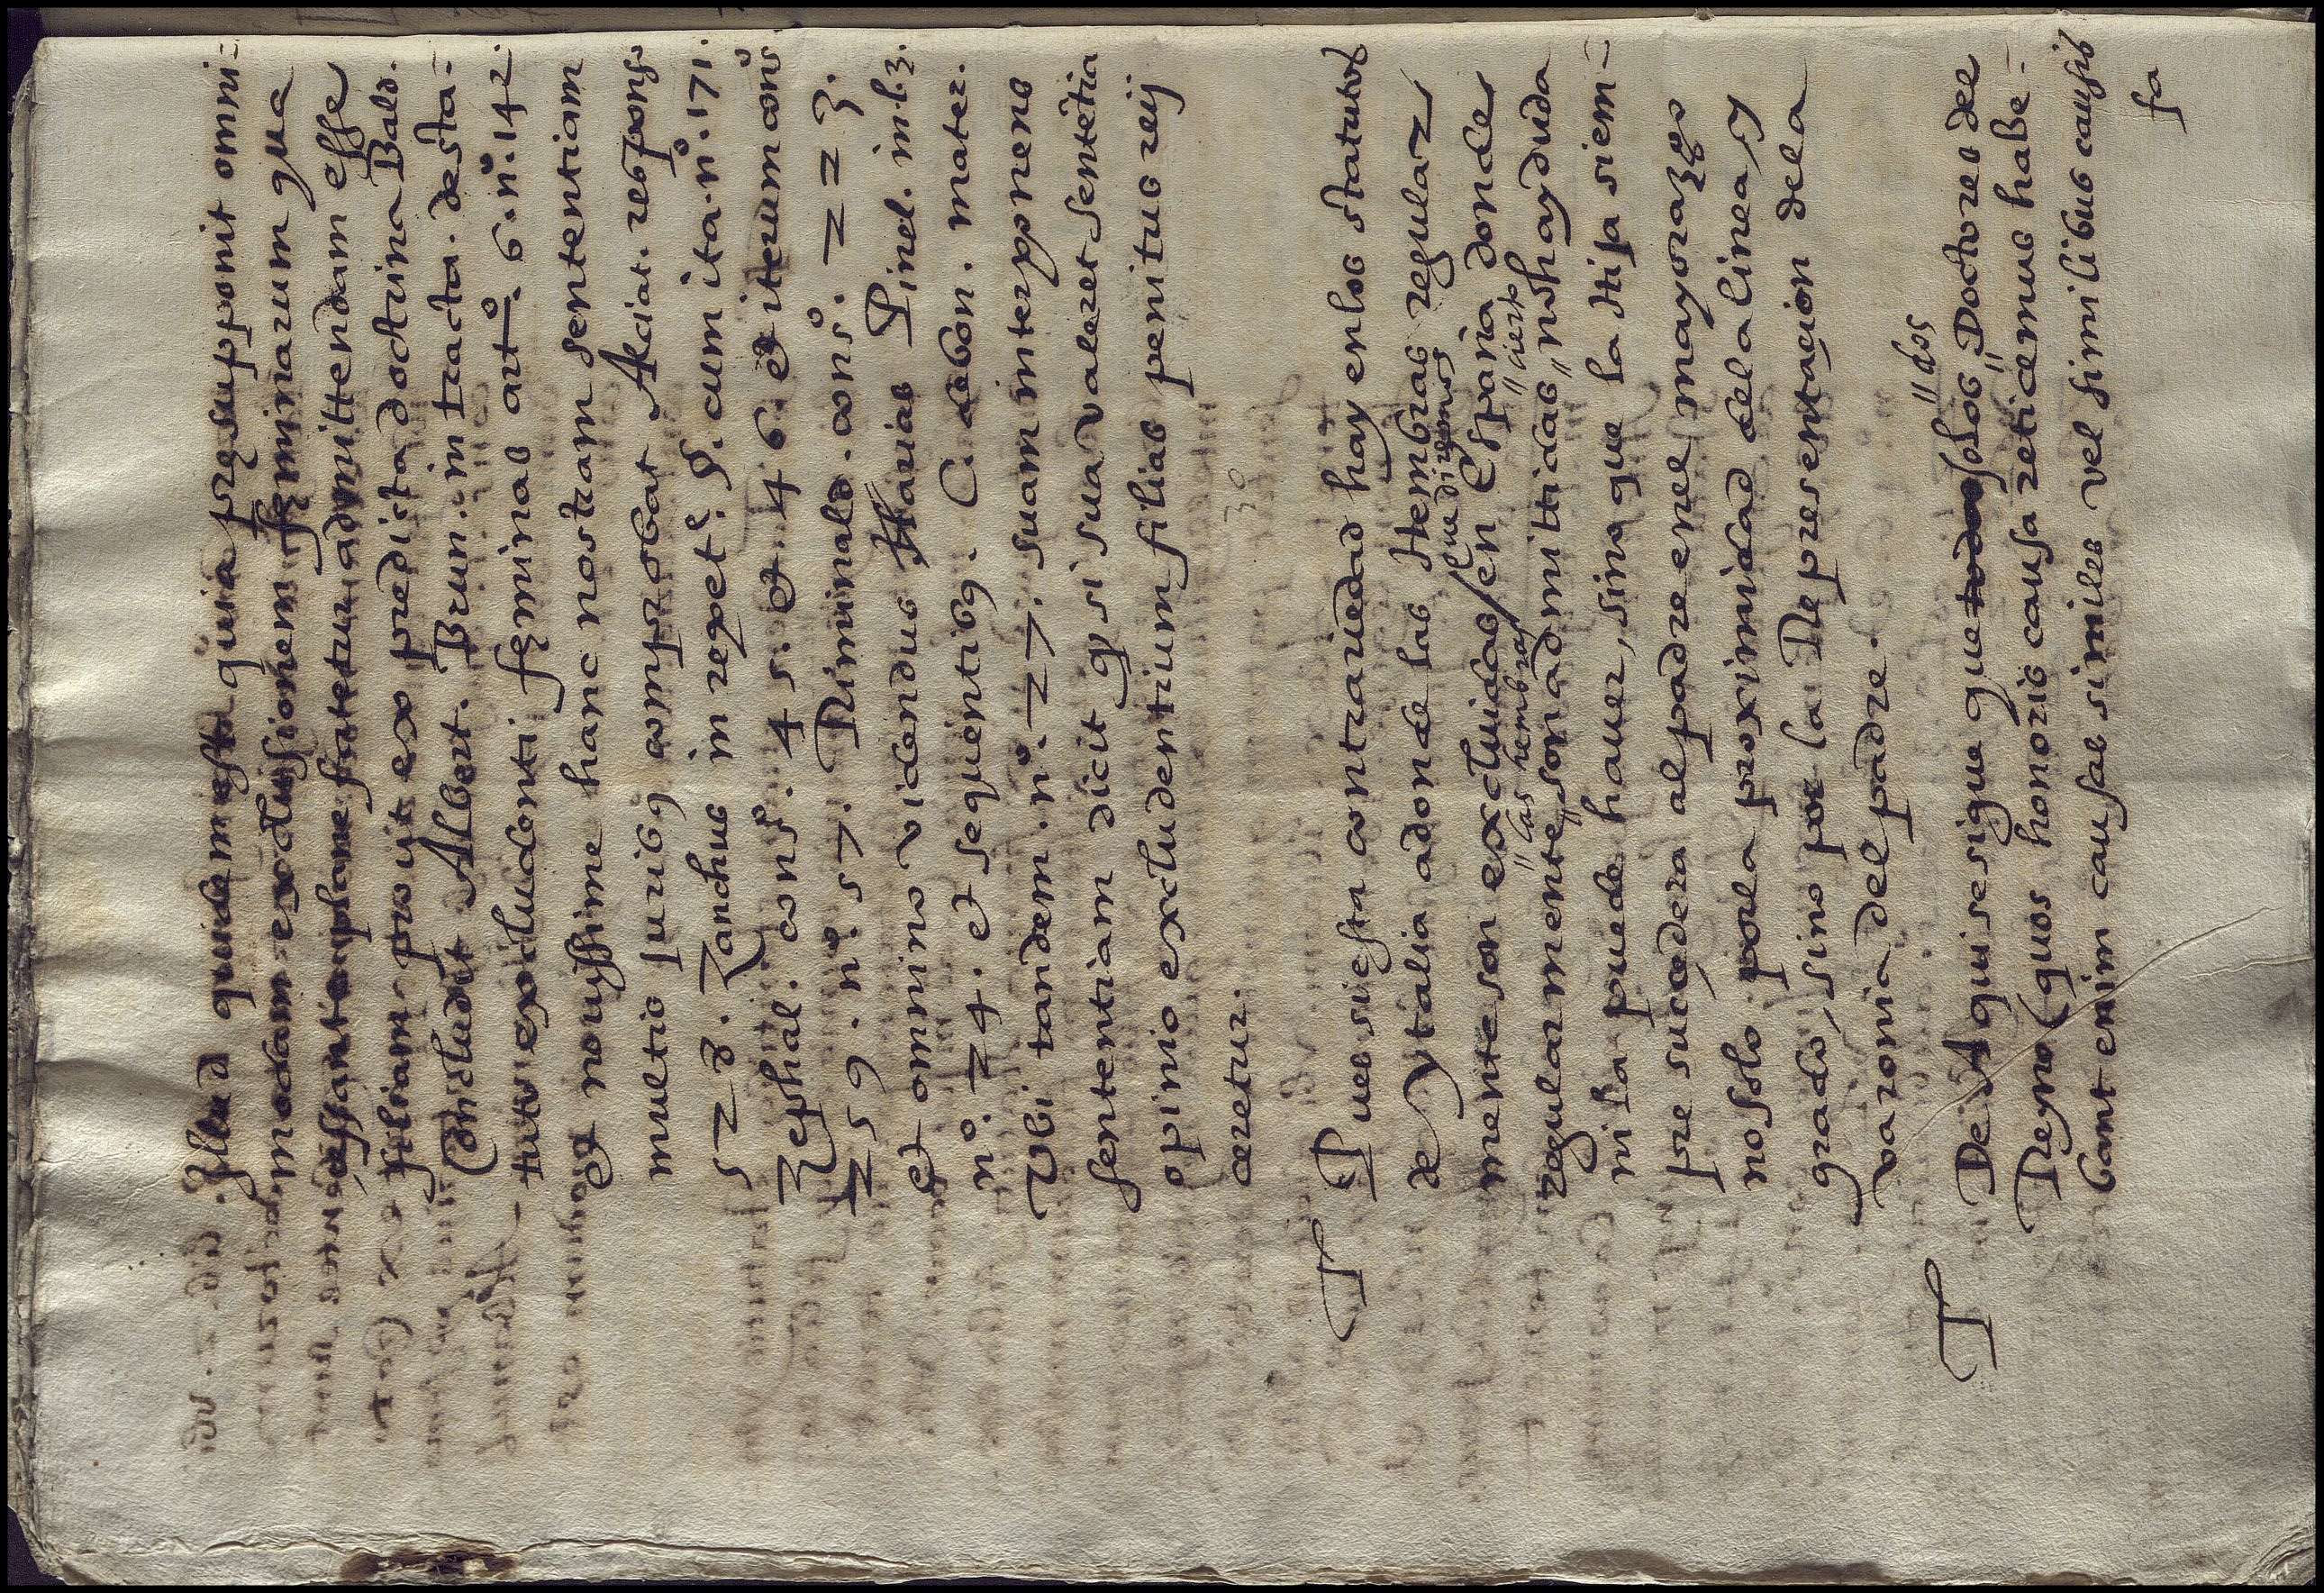 Illud quidem est quia presupponit omni-
modam exclusionem feminarum qua
cessante plane fatetur admittendam esse
filiam prout ex predicta doctrina Bald.
Concludit Albert. Brun. in tracta. de sta-
tuto excludenti feminas art.º 6. nº. 142.
et nouissime hanc nostram sententiam
multis jurib9 comprobat Alciat. respons
523. Zanchus in repet.e §. cum ita. nº. 171.
Zephal. consº. 45. et 46. et iterum consº
259. nº. 57. Riminald. consº. 223.
et omnino videndus Harias Pinel. in l. 3.
nº. 24. et sequentib9. C. de bon. mater.
Ubi tandem. nº. 27. suam interponens
sententiam dicit q̃ si sua valeret sentētia
opinio excludentium filias penitus reij
ceretur.
3º
Pues si esta contrariedad hay en los statutos
de ytalia adonde las Hembras regular
que diximos
mente son excluidas / en España donde
"las hembras "cierto
regularmente " son admittidas " no hay duda
ni la puede hauer, sino que la Hija siem-
pre sucedera al padre en el mayorazgo
no solo por la proximidad de la linea, y
grado, sino por la Representaçion de la
varonia del padre.
"dos
De Aqui se sigue que todos solos " Doctores del
Reyno (quos honoris causa reticemus habe-
bant enim causas similes vel similibus causis
fa